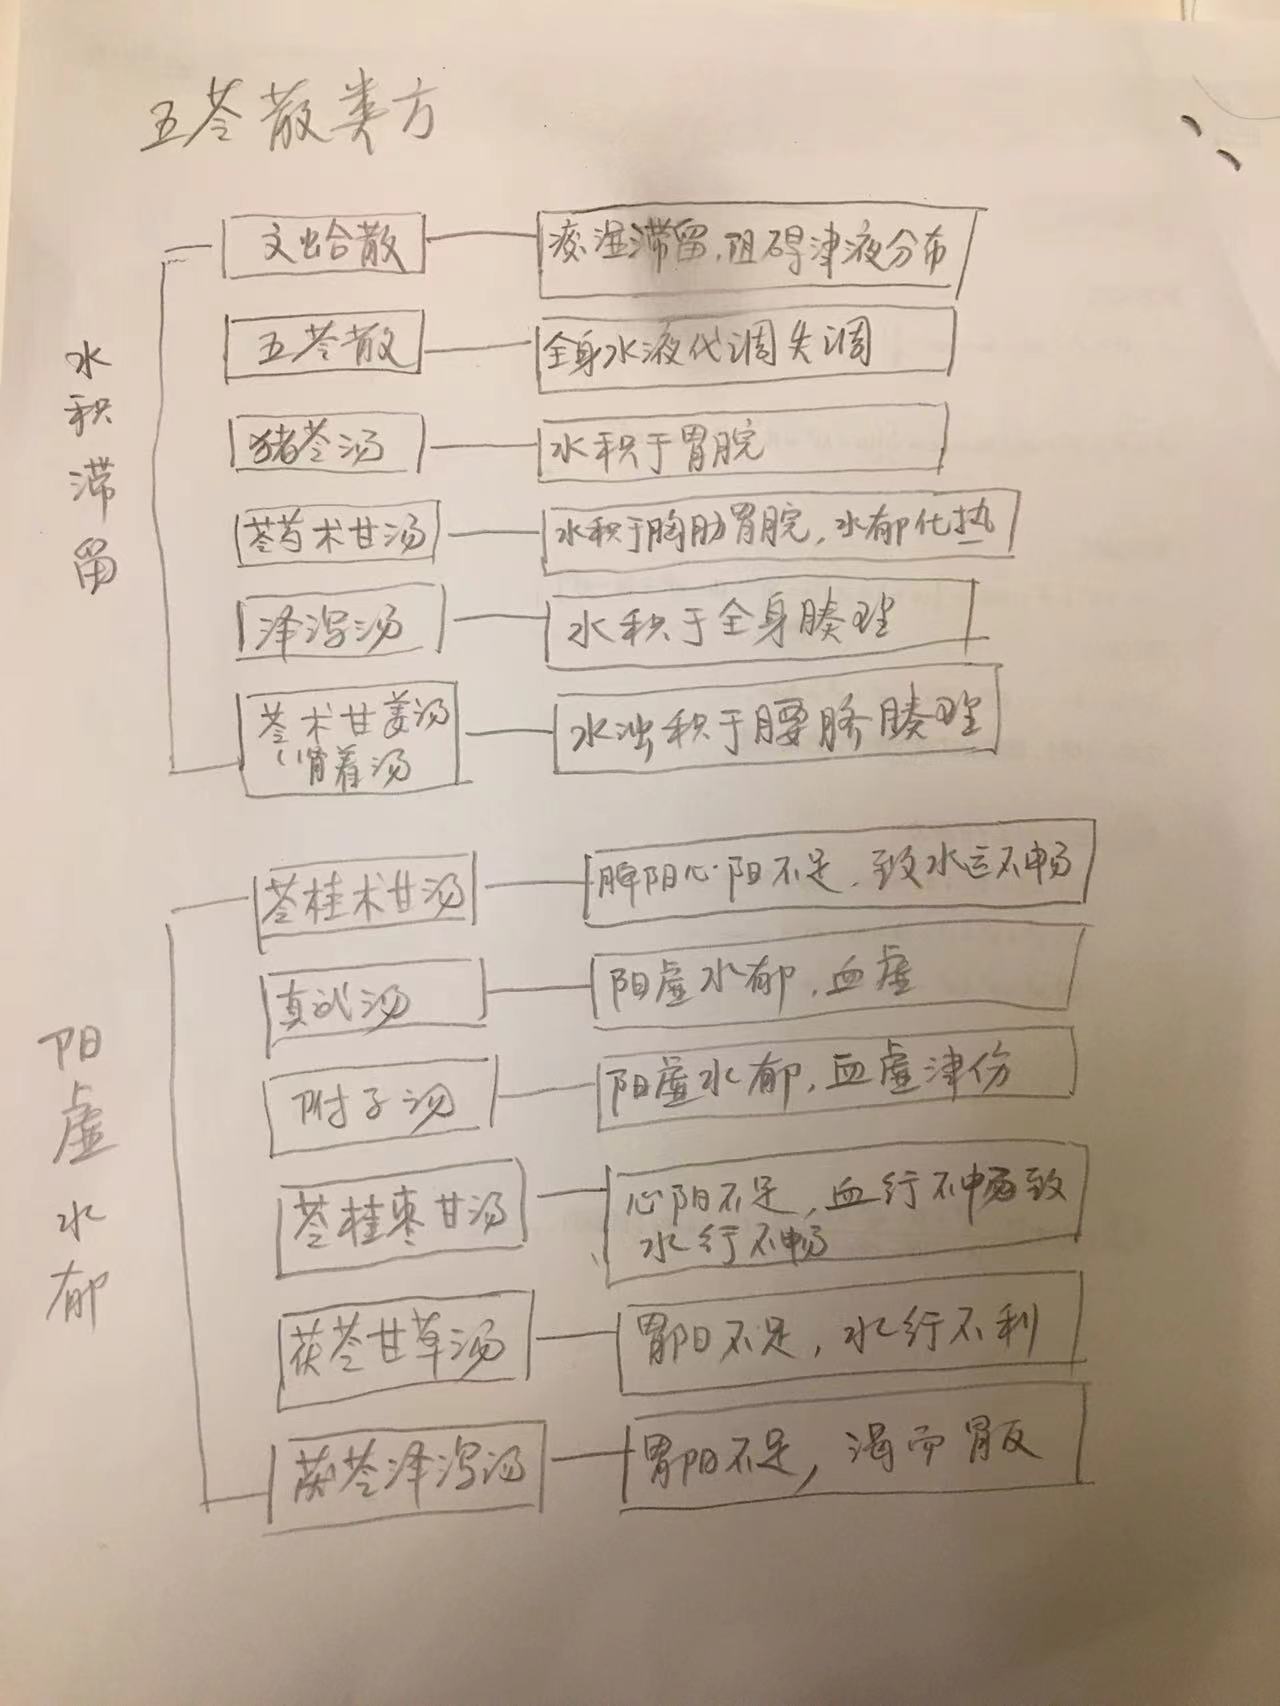 五苓散类方
水积滞留
文蛤散
痰湿滞留,阻碍津液分布
五苓散
全身水液代调失调
猪苓汤
水积于胃脘
苓芍术甘汤
水积于胸肋胃脘,水郁化热
泽泻汤
水积于全身腠理
苓术甘姜汤
(肾着汤
水浊积于腰脐腠理
阳虚水郁
苓桂术甘汤
脾阳心阳不足,致水运不畅
真武汤
阳虚水郁,血虚
附子汤
阳虚水郁,血虚津伤
苓桂枣甘汤
心阳不足,血行不畅致
水行不畅
茯苓甘草汤
胃阳不足,水行不利
茯苓泽泻汤
胃阳不足,渴而胃反